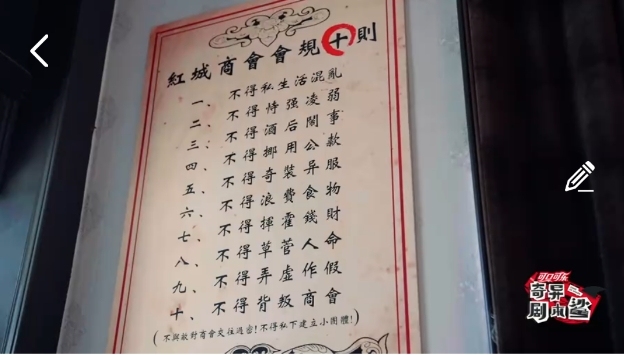 紅城商會會規十則
一、不得私生活混亂
二、不得恃强凌弱
三、不得酒后鬧事
四、不得挪用公款
五、不得奇裝异服
六、不得浪費食物
七、不得揮霍錢財
八、不得草菅人命
九、不得弄虛作假
十、不得背叛商會
(不與敵對商會交往過密!不得私下建立小團體!)
可口可乐
奇异剧本鲨